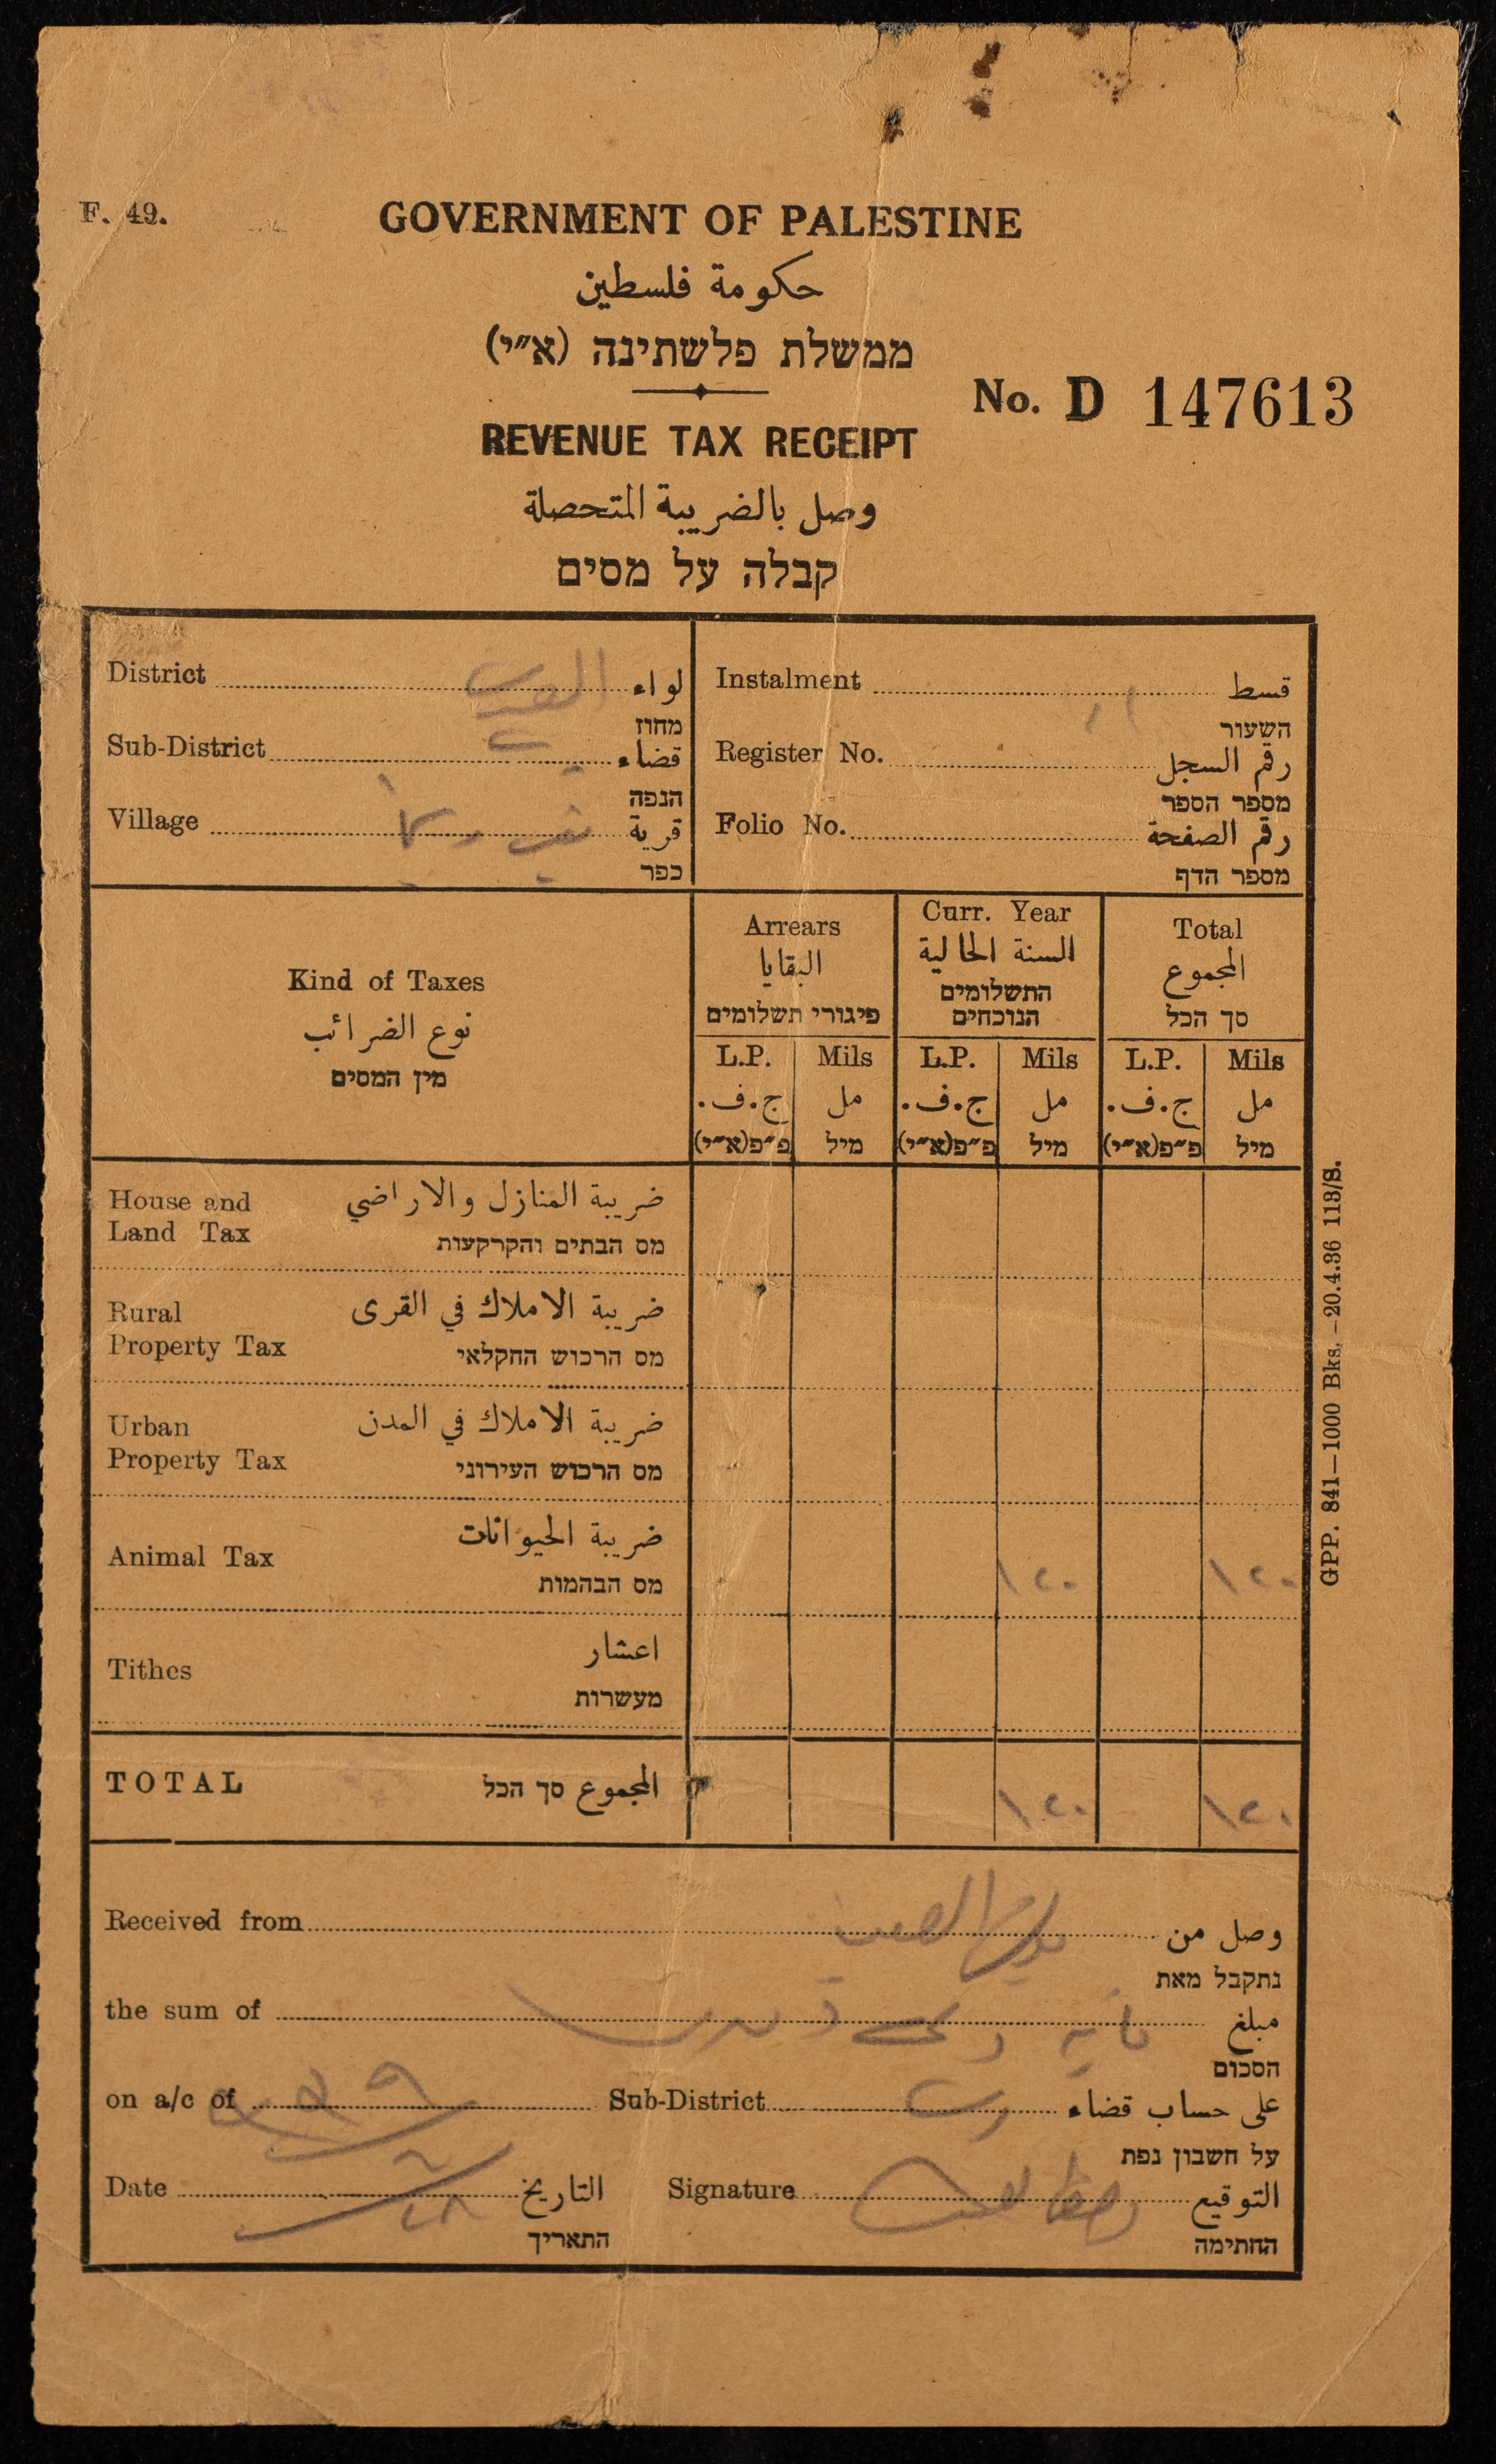 F. 49.
GOVERNMENT OF PALESTINE
حكومة فلسطين
ממשלת פלשתינה (א״י)
No. D 147613
REVENUE TAX RECEIPT
وصل بالضريبة المتحصلة
קבלה על מסים
District لواء
מחוז
Sub-District قضاء
הנפה
Village قرية
כפר
Instalment قسط
השעור
Register No. رقم السجل
מספר הספר
Folio No. رقم الصفحة
מספר הדף
Kind of Taxes
نوع الضرائب
מין המסים
Arrears
البقايا
פיגורי תשלומים
Curr. Year
السنة الحالية
התשלומים
הנוכחים
Total
المجموع
סך הכל
L.P. Mils L.P. Mils L.P. Mils
ج.ف. مل ج.ف. مل ج.ف. مل
פ״פ(א״י) מיל פ״פ(א״י) מיל פ״פ(א״י) מיל
House and
Land Tax
ضريبة المنازل والاراضي
מס הבתים והקרקעות
Rural
Property Tax
ضريبة الاملاك في القرى
מס הרכוש החקלאי
Urban
Property Tax
ضريبة الاملاك في المدن
מס הרכוש העירוני
Animal Tax
ضريبة الحيوانات
מס הבהמות
١٢٠ ١٢٠
Tithes
اعشار
מעשרות
TOTAL المجموع סך הכל ١٢٠ ١٢٠
Received from وصل من
נתקבל מאת
the sum of مبلغ
הסכום
on a/c of Sub-District على حساب قضاء
על חשבון נפת
Date التاريخ
התאריך
Signature التوقيع
החתימה
GPP. 841—1000 Bks.—20.4.36 118/S.